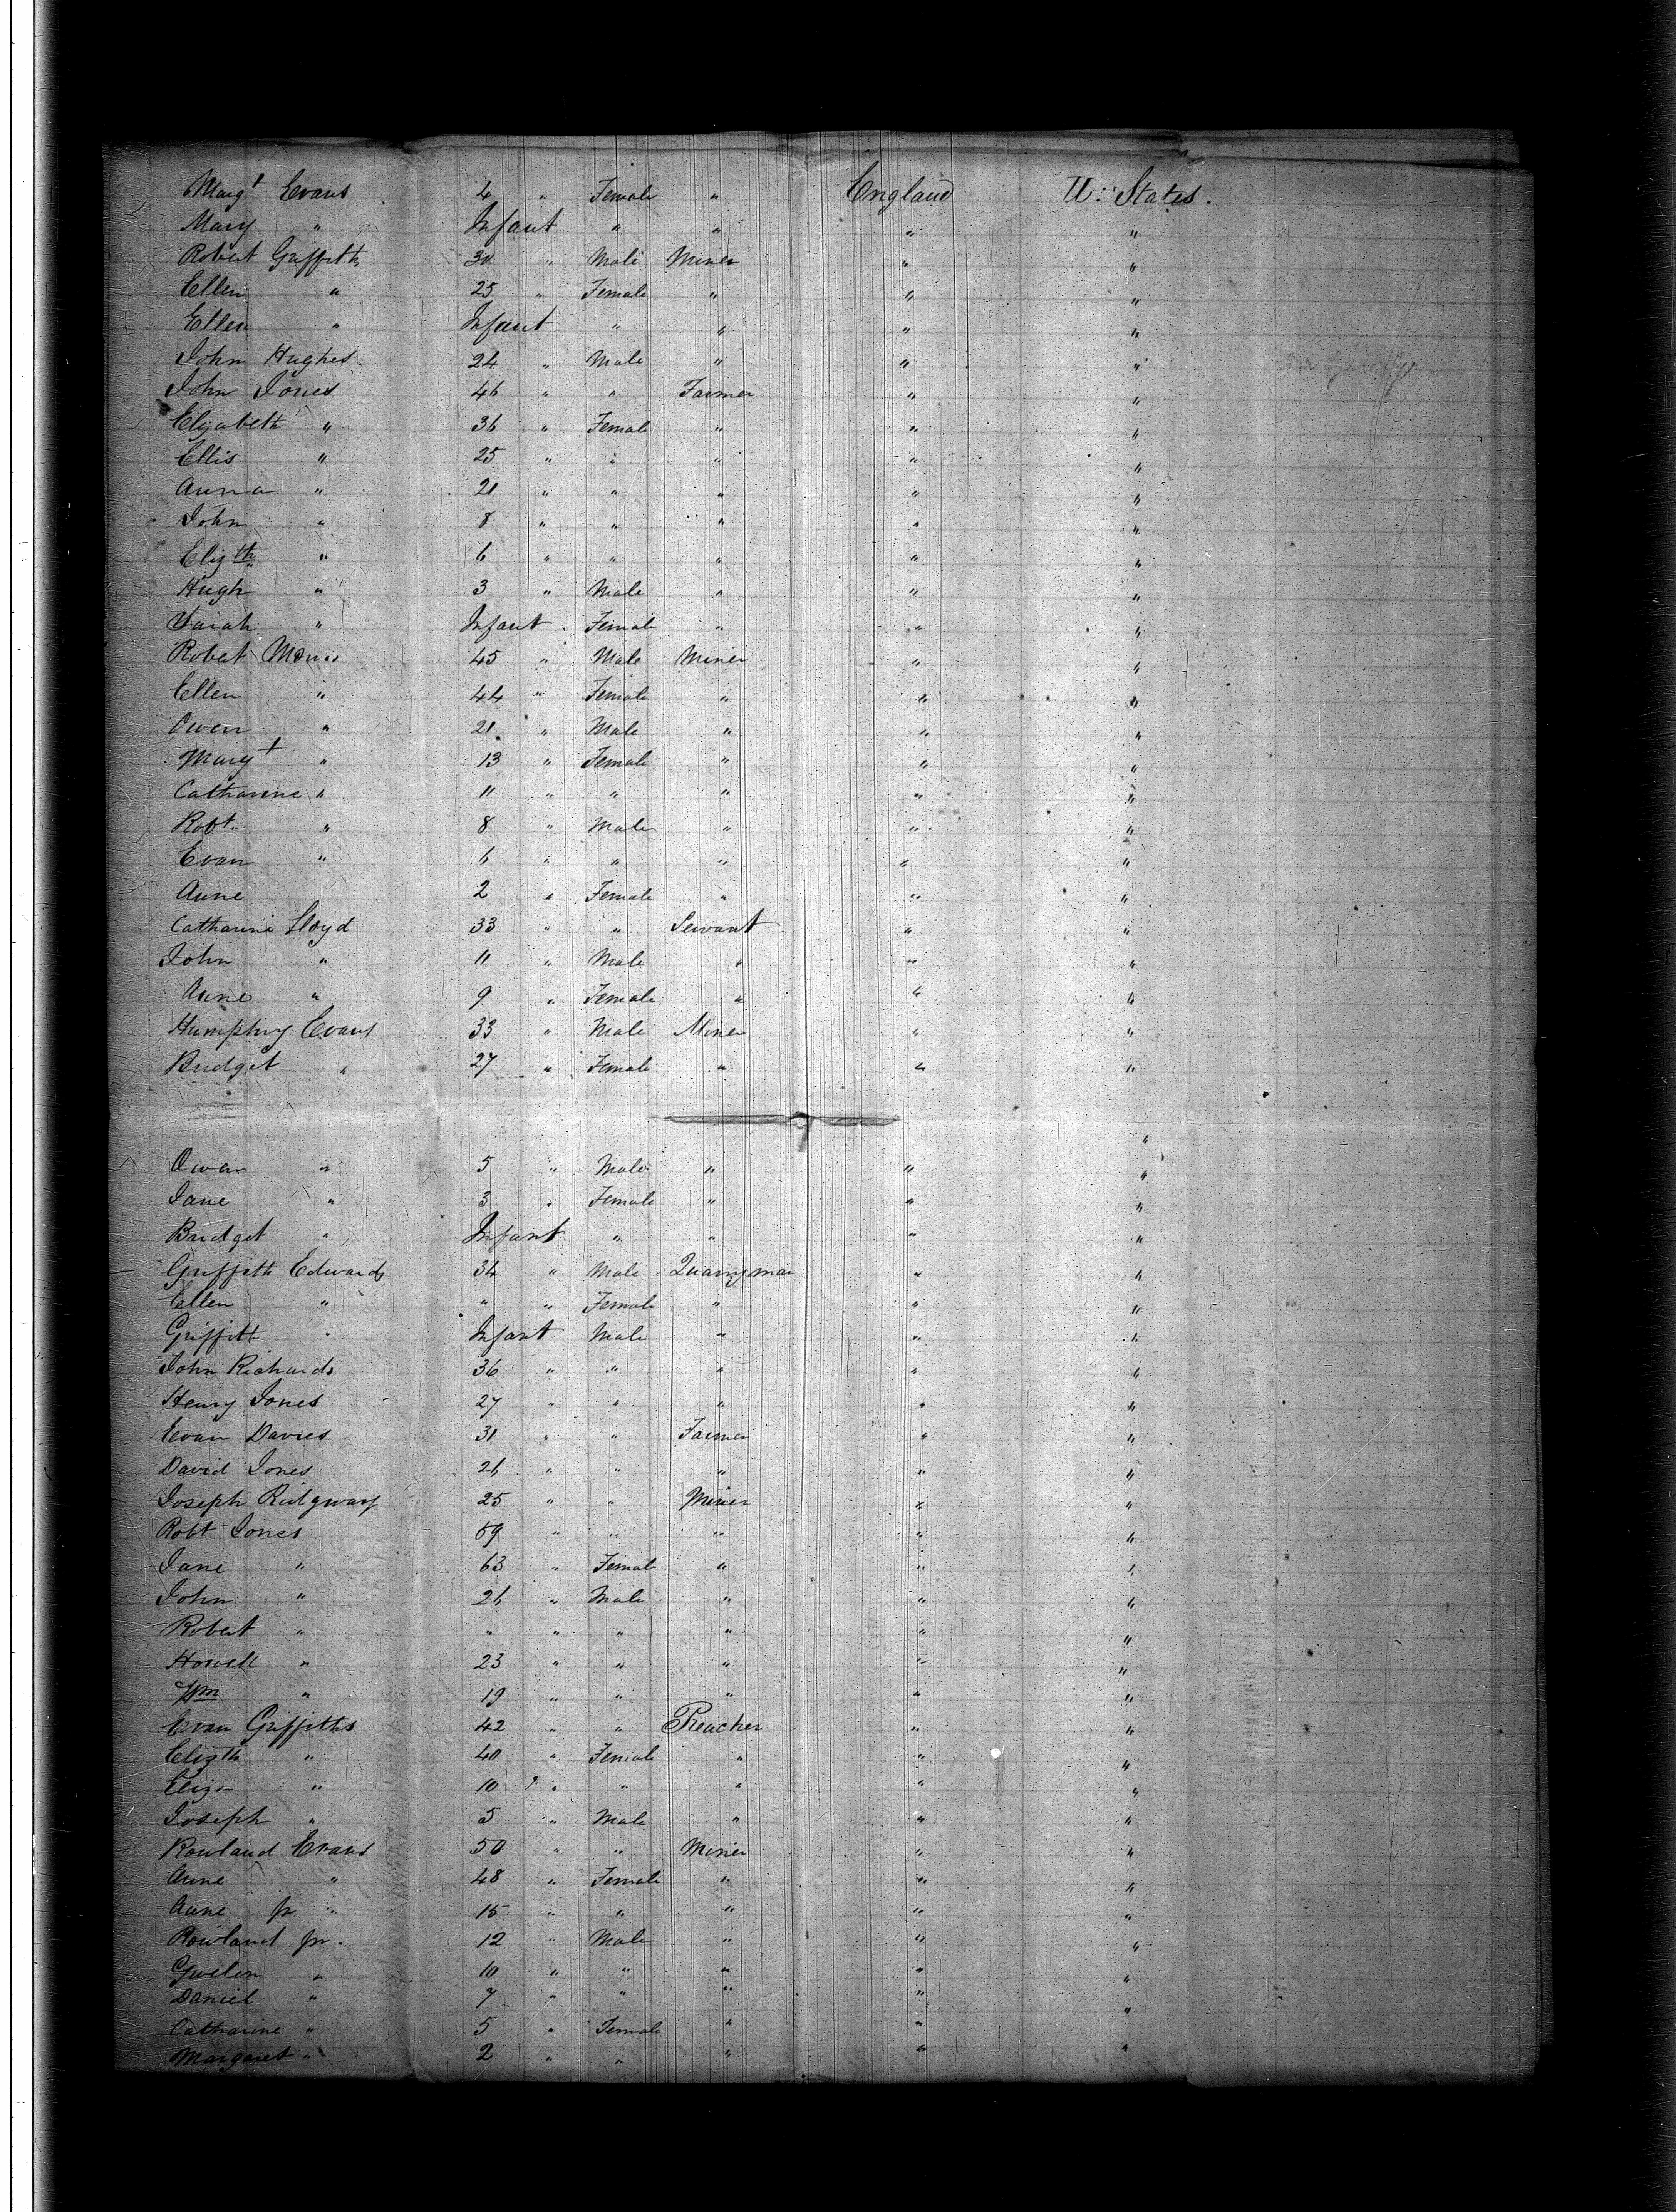 Margt Evans 4 " Female " England U: States.
Mary " Infant " " " "
Robert Griffith 30 " Male Miner " "
Ellen " 25 " Female " " "
Ellen " Infant " " " "
John Hughes 24 " Male " " "
John Jones 46 " " Farmer " "
Elizabeth " 36 " Female " " "
Ellis " 25 " " " " "
Anna " 21 " " " " "
John " 8 " " " " "
Elizth " 6 " " " " "
Hugh " 3 " Male " " "
Sarah " Infant Female " " "
Robert Morris 45 " Male Miner " "
Ellen " 44 " Female " " "
Owen " 21 " Male " " "
Margt " 13 " Female " " "
Catharine " 11 " " " " "
Robt. " 8 " Male " " "
Evan " 6 " " " " "
Anne " 2 " Female " " "
Catharine Lloyd 33 " " Servant " "
John " 11 " Male " " "
Anne " 9 " Female " " "
Humphry Evans 33 " Male Miner " "
Bridget " 27 " Female " " "
"
Owen " 5 " Male " " "
Jane " 3 " Female " " "
Bridget " Infant " " " "
Griffith Edwards 34 " Male Quarryman " "
Ellen " " " Female " " "
Griffith " Infant Male " " "
John Richards 36 " " " " "
Henry Jones 27 " " " " "
Evan Davies 31 " " Farmer " "
David Jones 26 " " " " "
Joseph Ridgway 25 " " Miner " "
Robt Jones 59 " " " " "
Jane " 63 " Female " " "
John " 26 " Male " " "
Robert " " " " " " "
Howell " 23 " " " " "
Wm " 19 " " " " "
Evan Griffiths 42 " " Preacher " "
Elizth " 40 " Female " " "
Eliza " 10 " " " " "
Joseph " 5 " Male " " "
Rowland Evans 50 " " Miner " "
Anne " 48 " Female " " "
Anne jr " 15 " " " " "
Rowland jr. 12 " Male " " "
Gwelen " 10 " " " " "
Daniel " 7 " " " " "
Catharine " 5 " Female " " "
Margaret " 2 " " " " "